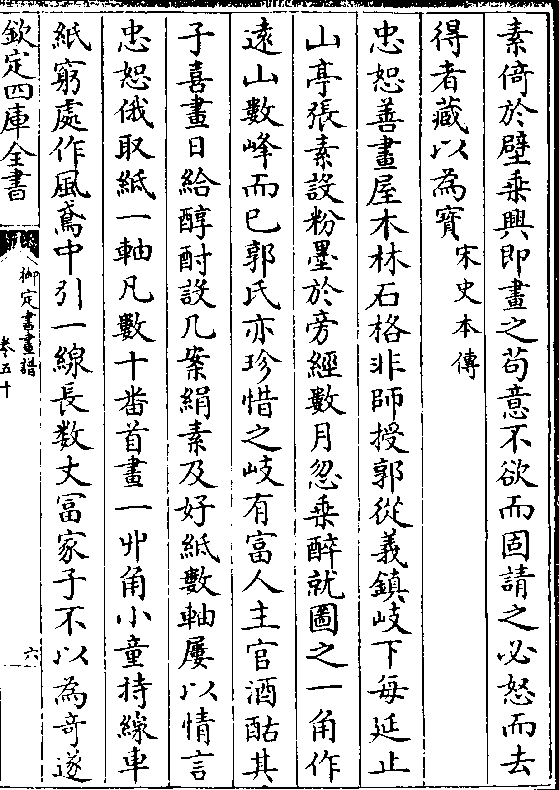 素倚於壁乗興即畫之苟意不欲而固請之必怒而去
得者藏以為寳宋史本傳
忠恕善畫屋木林石格非師授郭從義鎮岐下每延止
山亭張素設粉墨於旁經數月忽乗醉就圖之一角作
逺山數峰而已郭氏亦珍惜之岐有富人主官酒酤其
子喜畫日給醇酎設几案絹素及好紙數軸屢以情言
忠恕俄取紙一軸凡數十番首畫一丱角小童持線車
紙窮處作風鳶中引一線長数丈冨家子不以為竒遂
欽定四庫全書
御定書畫譜
卷五十
六